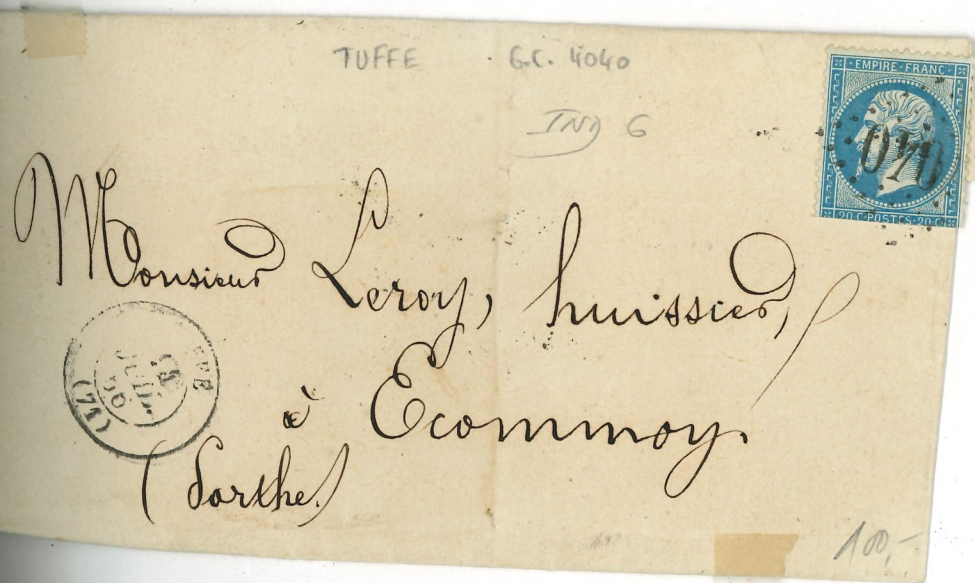 TUFFE G.C. 4040
IND 6
EMPIRE · FRANC
20 C · POSTES · 20 C
Monsieur Leroy, huissier,
à Ecommoy.
(Sarthe)
JUIL
66
(71)
100,-